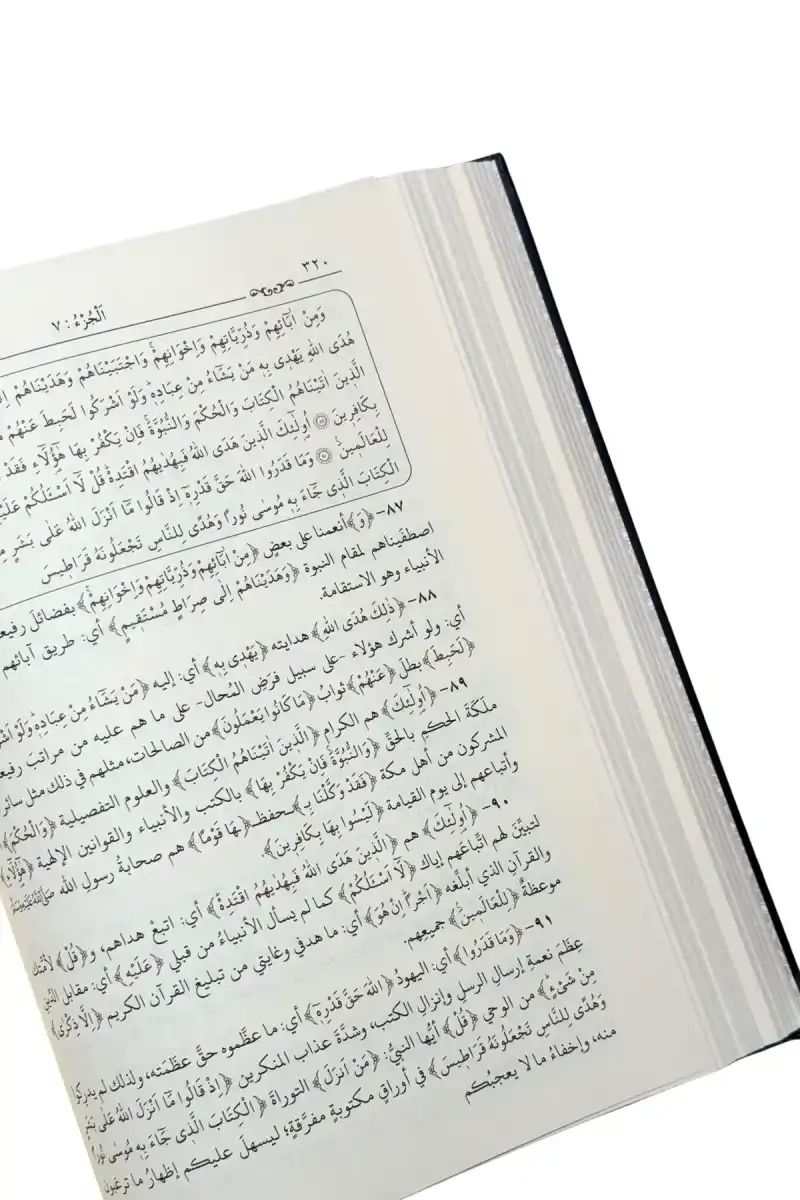 ٣٢٠
اَلْجُزْءُ : ٧
وَمِنْ اٰبَٓائِهِمْ وَذُرِّيَّاتِهِمْ وَاِخْوَانِهِمْۚ وَاجْتَبَيْنَاهُمْ وَهَدَيْنَاهُمْ
هُدَى اللّٰهِ يَهْد۪ي بِه۪ مَنْ يَشَٓاءُ مِنْ عِبَادِه۪ۜ وَلَوْ اَشْرَكُوا لَحَبِطَ عَنْهُمْ
الَّذ۪ينَ اٰتَيْنَاهُمُ الْكِتَابَ وَالْحُكْمَ وَالنُّبُوَّةَۚ فَاِنْ يَكْفُرْ بِهَا هٰٓؤُ۬لَٓاءِ فَقَدْ
بِكَافِر۪ينَ ﴿٨٩﴾ اُو۬لٰٓئِكَ الَّذ۪ينَ هَدَى اللّٰهُ فَبِهُدٰيهُمُ اقْتَدِهْۜ قُلْ لَٓا اَسْـَٔلُكُمْ عَلَيْهِ
لِلْعَالَم۪ينَ۟ ﴿٩٠﴾ وَمَا قَدَرُوا اللّٰهَ حَقَّ قَدْرِه۪ٓ اِذْ قَالُوا مَٓا اَنْزَلَ اللّٰهُ عَلٰى بَشَرٍ
الْكِتَابَ الَّذ۪ي جَٓاءَ بِه۪ مُوسٰى نُورًا وَهُدًى لِلنَّاسِ تَجْعَلُونَهُ قَرَاط۪يسَ
٨٧- ﴿وَ﴾ أنعمنا على بعضٍ ﴿مِنْ اٰبَٓائِهِمْ وَذُرِّيَّاتِهِمْ وَاِخْوَانِهِمْۚ﴾ بفضائلَ
اصطفَيناهم لمقام النبوة ﴿وَهَدَيْنَاهُمْ اِلٰى صِرَاطٍ مُسْتَق۪يمٍ﴾ أي: طريق آبائهم
الأنبياء وهو الاستقامة.
٨٨- ﴿ذٰلِكَ هُدَى اللّٰهِ﴾ هدايته ﴿يَهْد۪ي بِه۪﴾ أي: إليه ﴿مَنْ يَشَٓاءُ مِنْ عِبَادِه۪ۜ وَلَوْ
أي: ولو أشرك هؤلاء -على سبيل فرَضِ المُحال- على ما هم عليه من مراتبَ
﴿لَحَبِطَ﴾ بطلَ ﴿عَنْهُمْ﴾ ثوابُ ﴿مَا كَانُوا يَعْمَلُونَ﴾ من الصالحات، مثلهم في ذلك مثل سائر
٨٩- ﴿اُو۬لٰٓئِكَ﴾ هم الكرام ﴿الَّذ۪ينَ اٰتَيْنَاهُمُ الْكِتَابَ﴾ والعلوم التفصيلية ﴿وَالْحُكْمَ﴾
ملَكَةَ الحكمِ بالحقِّ ﴿وَالنُّبُوَّةَۚ فَاِنْ يَكْفُرْ بِهَا﴾ بالكتب والأنبياء والقوانين الإلهية ﴿هٰٓؤُ۬لَٓاءِ﴾
المشركون من أهل مكة ﴿فَقَدْ وَكَّلْنَا بِـ﴾ـحفظِـ﴿ـهَا قَوْمًا﴾ هم صحابةُ رسولِ الله ﷺ
وأتباعهم إلى يوم القيامة ﴿لَيْسُوا بِهَا بِكَافِر۪ينَ﴾.
٩٠- ﴿اُو۬لٰٓئِكَ﴾ هم ﴿الَّذ۪ينَ هَدَى اللّٰهُ فَبِهُدٰيهُمُ اقْتَدِهْۜ﴾ أي: اتبعْ هداهم، و﴿قُلْ﴾
لتبيِّنَ لهم اتِّباعَهم إياك ﴿لَٓا اَسْـَٔلُكُمْ﴾ كما لم يسأل الأنبياءُ من قبلي ﴿عَلَيْهِ﴾ أي: مقابل
والقرآنِ الذي أبلِّغه ﴿اَجْرًاۜ اِنْ هُوَ﴾ أي: ما هدفي وغايتي من تبليغ القرآن الكريم ﴿اِلَّا ذِكْرٰى﴾
موعظةً ﴿لِلْعَالَم۪ينَ۟﴾ جميعِهم.
٩١- ﴿وَمَا قَدَرُوا﴾ أي: اليهودُ ﴿اللّٰهَ حَقَّ قَدْرِه۪ٓ﴾ أي: ما عظَّموه حقَّ عظَمَته، ولذلك لم يدركوا
عِظَمَ نعمةِ إرسالِ الرسلِ وإنزالِ الكتب، وشدَّةَ عذاب المنكرين ﴿اِذْ قَالُوا مَٓا اَنْزَلَ اللّٰهُ عَلٰى بَشَرٍ
مِنْ شَيْءٍۜ﴾ من الوحي ﴿قُلْ﴾ أيُّها النبيُّ: ﴿مَنْ اَنْزَلَ﴾ التوراةَ ﴿الْكِتَابَ الَّذ۪ي جَٓاءَ بِه۪ مُوسٰى نُورًا
وَهُدًى لِلنَّاسِ تَجْعَلُونَهُ قَرَاط۪يسَ﴾ في أوراقٍ مكتوبةٍ مفرَّقةٍ؛ ليسهلَ عليكم إظهارُ ما ترغبون
منه، وإخفاءُ ما لا يعجبُكم